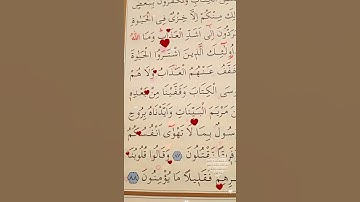 الكتاب وتكفرون ببعض
لك منكم إلا خزى فى الحيوة
يردون إلى أشد العذاب وما الله
أولئك الذين اشتروا الحيوة
يخفف عنهم العذاب ولا هم
موسى الكتاب وقفينا من بعده
ابن مريم البينات وأيدناه بروح
رسول بما لا تهوى أنفسكم
فريقا تقتلون ٨٧ وقالوا قلوبنا
فقليلا ما يؤمنون ٨٨